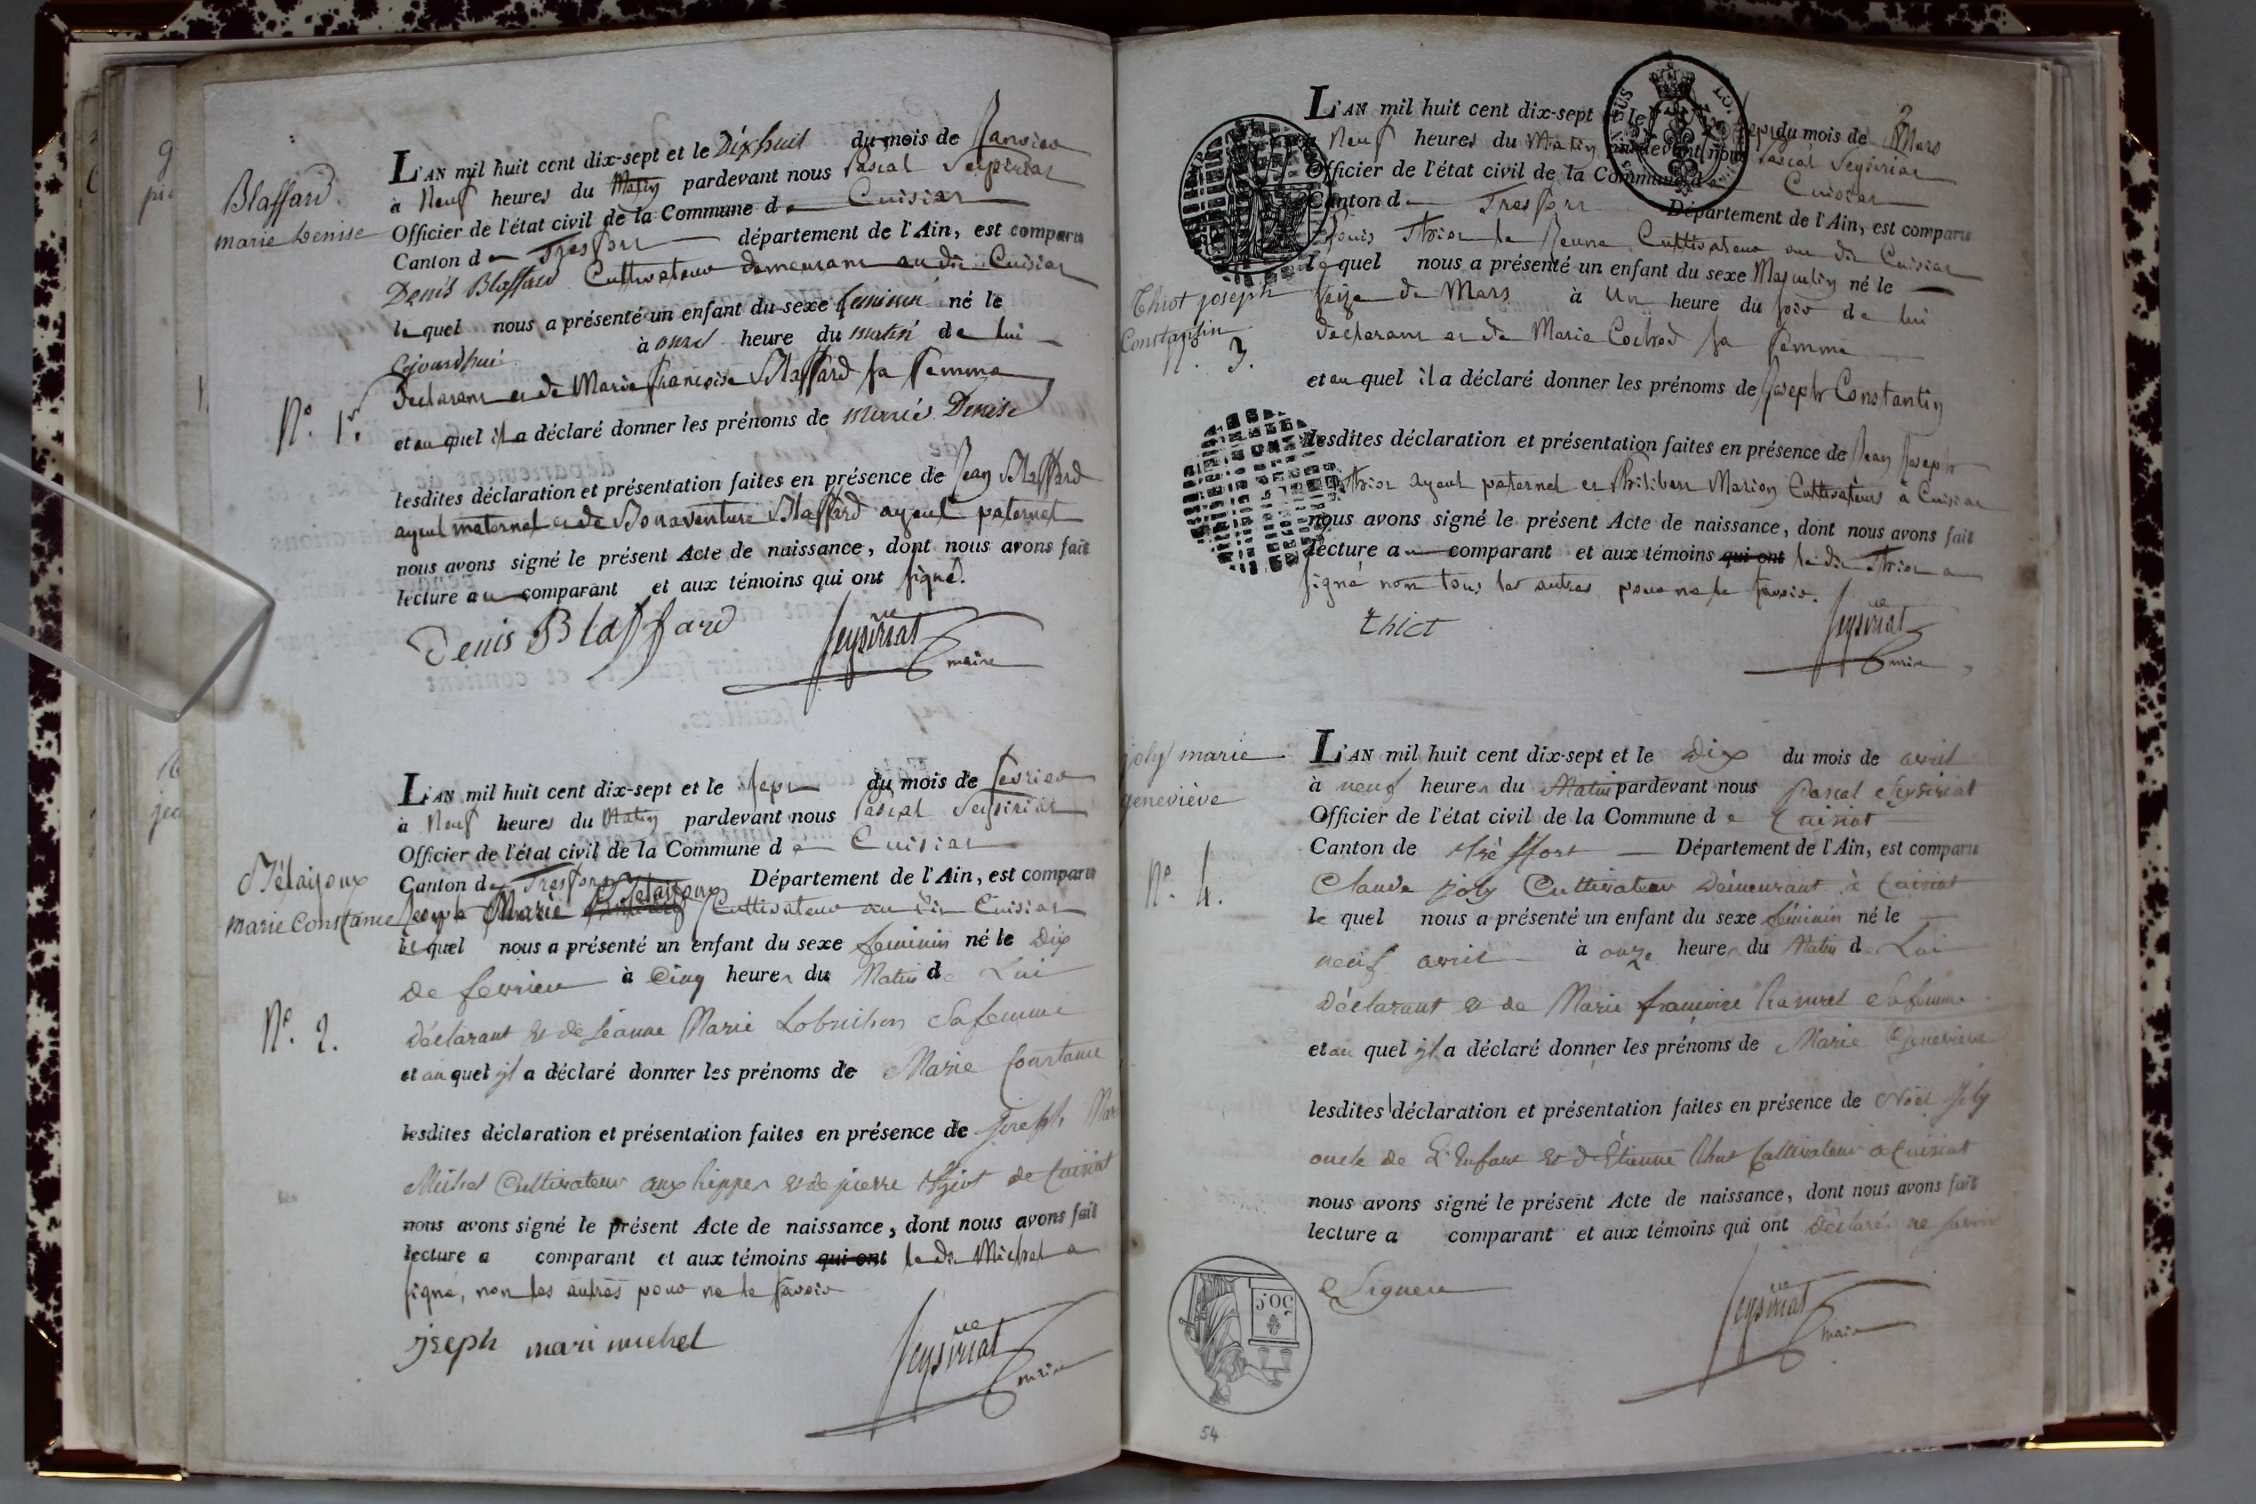 Blaffard
marie Denise
N.o 1.er
L'AN mil huit cent dix-sept et le Dixhuit du mois de Janvier
à Neuf heures du Matin pardevant nous Pascal Seysiriat
Officier de l'état civil de la Commune de Cuisiat
Canton de Treffort département de l'Ain, est comparu
Denis Blaffard Cultivateur demeurant au dit Cuisiat
lequel nous a présenté un enfant du sexe feminin né le
Cejourdhui à onze heure du matin de lui
declarant et de Marie françoise Blaffard sa femme
et au quel il a déclaré donner les prénoms de marie Denise
lesdites déclaration et présentation faites en présence de Jean Blaffard
ayeul maternel et de Bonaventure Blaffard ayeul paternel
nous avons signé le présent Acte de naissance, dont nous avons fait
lecture au comparant et aux témoins qui ont signé.
Denis Blaffard Seysiriat
maire
marie Constance
N.o 2.
L'AN mil huit cent dix-sept et le Sept du mois de fevrier
à Neuf heures du Matin pardevant nous Pascal Seysiriat
Officier de l'état civil de la Commune de Cuisiat
Canton de Treffort Département de l'Ain, est comparu
Joseph Marie Cultivateur au dit Cuisiat
lequel nous a présenté un enfant du sexe feminin né le Dix
De fevrier à Cinq heures du Matin de Lui
Déclarant et de Jeanne Marie sa femme
et au quel yl a déclaré donner les prénoms de Marie Constance
lesdites déclaration et présentation faites en présence de Joseph Marie
Michel Cultivateur et de pierre de Cuisiat
nous avons signé le présent Acte de naissance, dont nous avons fait
lecture a comparant et aux témoins qui ont le dit Michel a
signé, non les autres pour ne le savoir
joseph mari michel Seysiriat
maire
Thiot joseph
Constantin
N. 3.
L'AN mil huit cent dix-sept et le du mois de Mars
à Neuf heures du Matin pardevant nous Pascal Seysiriat
Officier de l'état civil de la Commune de Cuisiat
Canton de Treffort Département de l'Ain, est comparu
Louis Thiot le Jeune Cultivateur au dit Cuisiat
lequel nous a présenté un enfant du sexe Masculin né le
seize de Mars à Un heure du soir de lui
declarant et de Marie Cochod sa femme
et au quel il a déclaré donner les prénoms de Joseph Constantin
lesdites déclaration et présentation faites en présence de Jean Joseph
Thiot ayeul paternel et Philibert Marion Cultivateurs à Cuisiat
nous avons signé le présent Acte de naissance, dont nous avons fait
lecture au comparant et aux témoins qui ont le dit Thiot a
signé non tous les autres pour ne le savoir.
thiot Seysiriat
maire
joly marie
geneviève
N.o 4.
L'AN mil huit cent dix-sept et le Dix du mois de avril
à neuf heures du Matin pardevant nous Pascal Seysiriat
Officier de l'état civil de la Commune de Cuisiat
Canton de Tréffort Département de l'Ain, est comparu
Claude joly Cultivateur Demeurant à Cuisiat
le quel nous a présenté un enfant du sexe féminin né le
neuf avril à onze heures du Matin de Lui
Déclarant et de Marie françoise sa femme
et au quel yl a déclaré donner les prénoms de Marie Genevieve
lesdites déclaration et présentation faites en présence de Noël Joly
oncle de L'Enfant et d'Étienne Cultivateur à Cuisiat
nous avons signé le présent Acte de naissance, dont nous avons fait
lecture a comparant et aux témoins qui ont Déclaré ne savoir
Signer Seysiriat
maire
50C
54